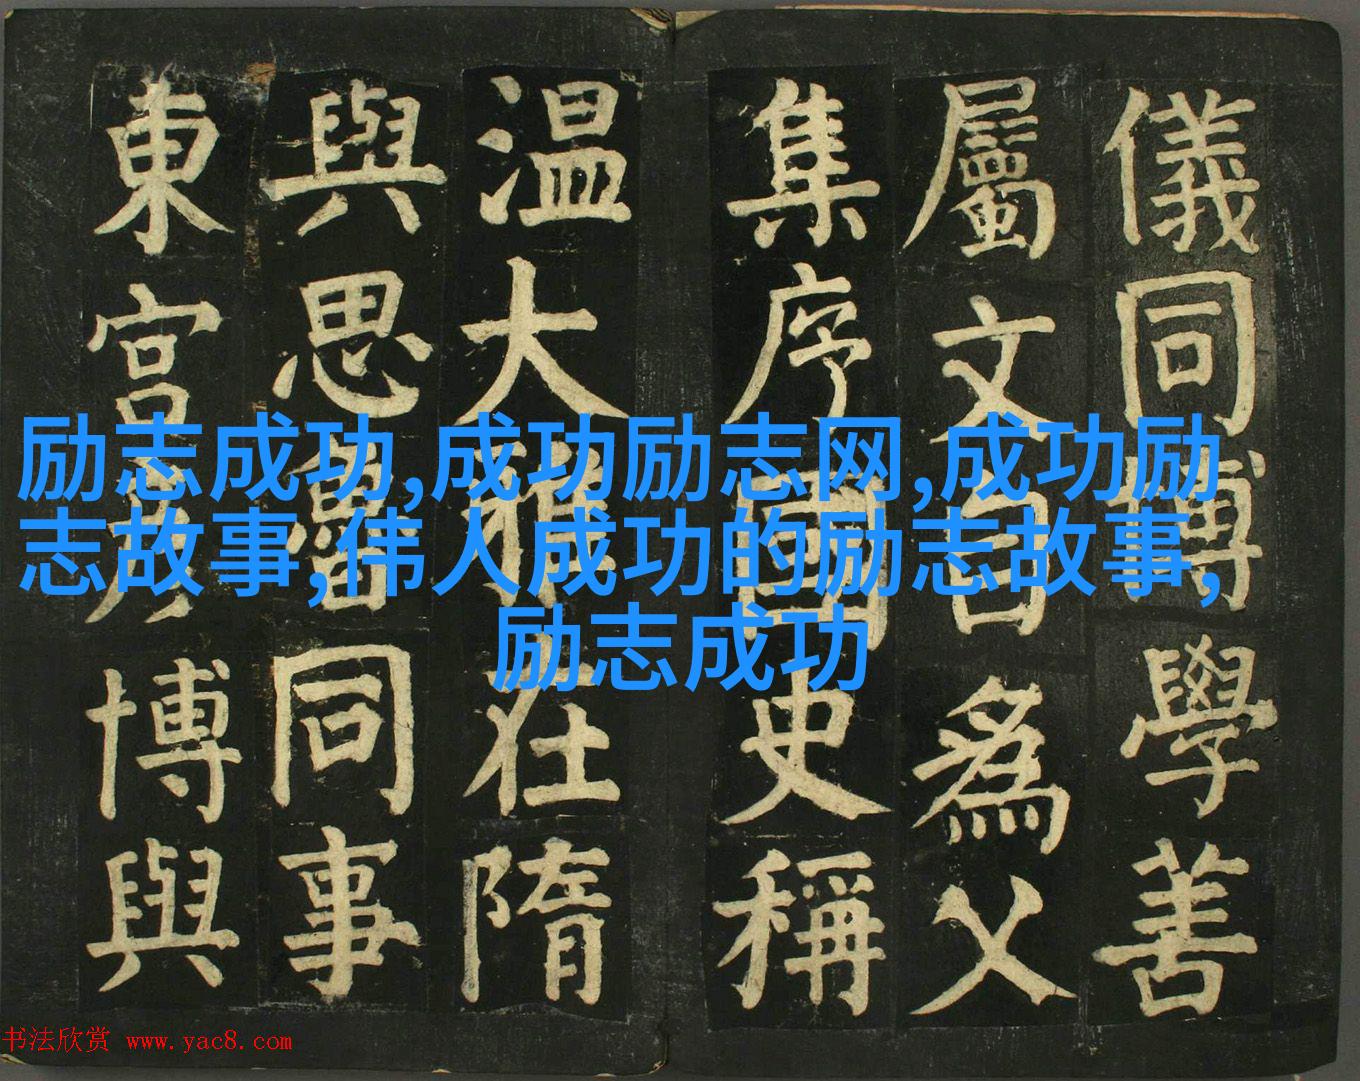 儀同博學善
屬文言爲父
集序國史稱
温大雅在隋
與思魯同事
東宮彦博與
励志成功,成功励志网,成功励
志故事,伟人成功的励志故事,
励志成功
书法欣赏 www.yac8.com